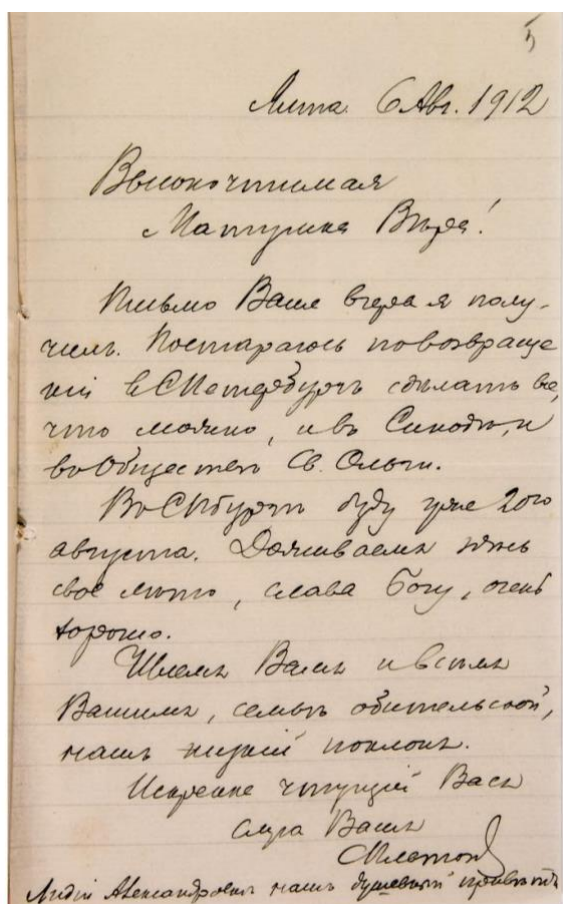 5
Ялта. 6 Авг. 1912
Высокочтимая
Матушка Вѣра!
Письмо Ваше вчера я полу-
чилъ. Постараюсь по возвраще
ніи въ СПетербургъ сдѣлать все,
что можно, и въ Синодѣ, и
въ Обществѣ Св. Ольги.
Въ СПбургѣ буду уже 20го
августа. Доживаемъ здѣсь
свое лѣто, слава Богу, очень
хорошо.
Шлемъ Вамъ и всѣмъ
Вашимъ, семьѣ обительской,
нашъ низкій поклонъ.
Искренне чтущій Васъ
слуга Вашъ
Лидіи Александровнѣ нашъ душевный привѣтъ